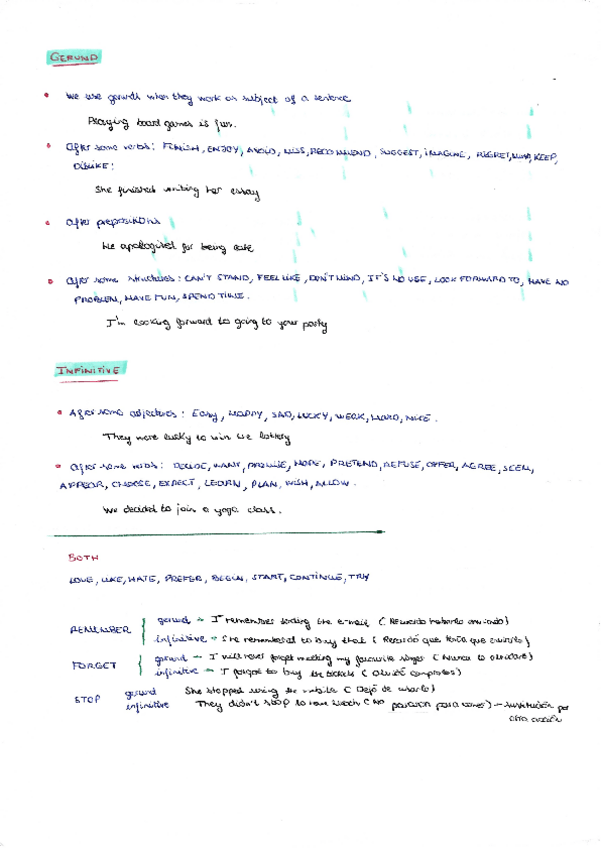 GERUND
• We use gerunds when they work as subject of a sentence
Playing board games is fun.
• After some verbs: FINISH, ENJOY, AVOID, MISS, RECOMMEND, SUGGEST, IMAGINE, REGRET, MIND, KEEP,
DISLIKE:
She finished writing her essay
• After prepositions
We apologised for being late
• After some structures: CAN'T STAND, FEEL LIKE, DON'T MIND, IT'S NO USE, LOOK FORWARD TO, HAVE NO
PROBLEM, HAVE FUN, SPEND TIME.
I'm looking forward to going to your party
INFINITIVE
• After some adjectives: EASY, HAPPY, SAD, LUCKY, WEAK, HARD, NICE.
They were lucky to win the lottery
• After some verbs: DECIDE, WANT, PROMISE, HOPE, PRETEND, REFUSE, OFFER, AGREE, SEEM,
APPEAR, CHOOSE, EXPECT, LEARN, PLAN, WISH, ALLOW.
We decided to join a yoga class.
BOTH
LOVE, LIKE, HATE, PREFER, BEGIN, START, CONTINUE, TRY
REMEMBER
gerund → I remember sending the e-mail (Recuerdo haberlo enviado)
infinitive → She remembered to buy that (Recordó que tenía que
FORGET
gerund → I will never forget meeting my favourite singer (Nunca lo olvidaré)
infinitive → I forgot to buy the tickets (Olvidé comprarlos)
STOP
gerund She stopped using the mobile (Dejó de usarlo)
infinitive They didn't stop to have lunch (No pararon para comer) → sustitución por
otra acción